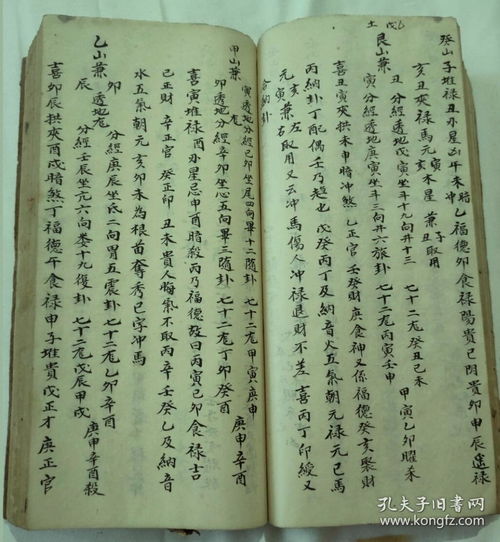 土戊6
癸山子堆禄丑水星忌午未冲
暗乙福德卯食禄陽貴巳阴貴卯申辰遥禄
亥丑夾禄馬元寅木星兼子取用
艮山兼
丑 分經透地戊寅坐斗十九向井十三 七十二龙癸丑己未
寅 分經透地庚寅坐斗三向井六旅卦 七十二龙丙寅壬申 甲寅乙卯曜杀
喜丑寅夾拱未申暗冲煞 乙正官壬癸財庚食神又係福德癸亥聚財
丙納卦丁配偶壬乃趋也 戊癸丙丁及納音火五氣朝元禄元巳馬
元亥兼右取用又云冲馬傷人冲禄退財不差 喜丙丁印綬又
合納卦
甲山兼
寅透地分經己卯坐尾四向畢十二随卦 七十二龙甲寅庚申
卯透地分經辛卯坐心五向畢三随卦 七十二龙丁卯癸酉 庚申辛酉
喜寅堆禄酉水星忌申酉暗殺丙乃福德故曰丙寅己卯食禄吉
己正財 辛正官 癸正印 丑未貴人晦氣不取丙辛壬癸乙及納音
水五氣朝元亥卯未為根苗奪秀巳字冲馬
乙山兼
卯 透地龙 分經庚辰坐氐二向胃五震卦 七十二龙乙卯辛酉
辰 分經壬辰坐亢六向婁十九復卦 七十二龙戊辰甲戌 庚申辛酉殺
喜卯辰拱夾酉戌暗煞丁福德午食禄申子堆貴戊正才庚正官
孔夫子旧书网
www.kongfz.com